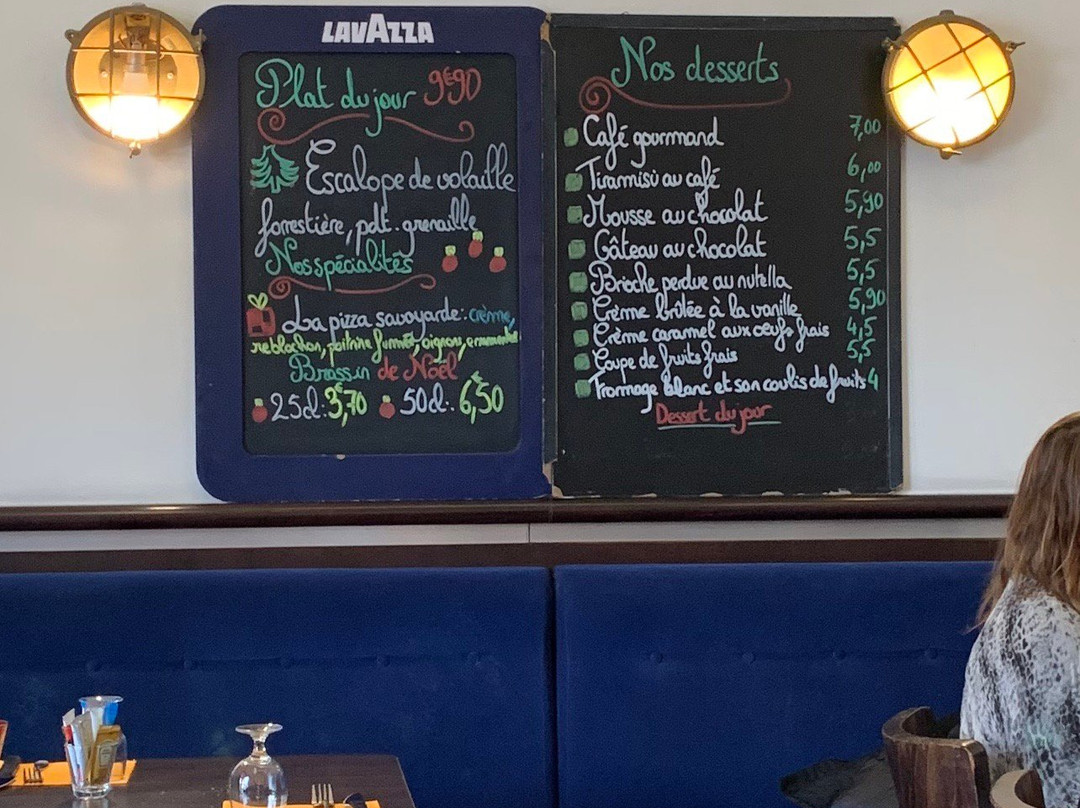 LAVAZZA
Plat du jour 9€90
Escalope de volaille
forrestière, pdt. grenaille
Nos spécialités
La pizza savoyarde: crème,
reblochon, poitrine fumée, oignons, emmental
Brassin de Noël
25cl: 3€,70 50cl: 6€,50
Nos desserts
Café gourmand 7,00
Tiramisù au café 6,00
Mousse au chocolat 5,90
Gâteau au chocolat 5,5
Brioche perdue au nutella 5,5
Crème brûlée à la vanille 5,90
Crème caramel aux oeufs frais 4,5
Coupe de fruits frais 5,5
Fromage blanc et son coulis de fruits 4
Dessert du jour